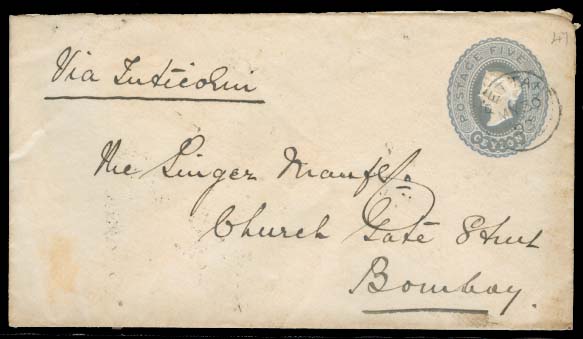 Via Tuticorin
The Singer Manufg Co
Church Gate Street
Bombay.
POSTAGE FIVE
CEYLON
47